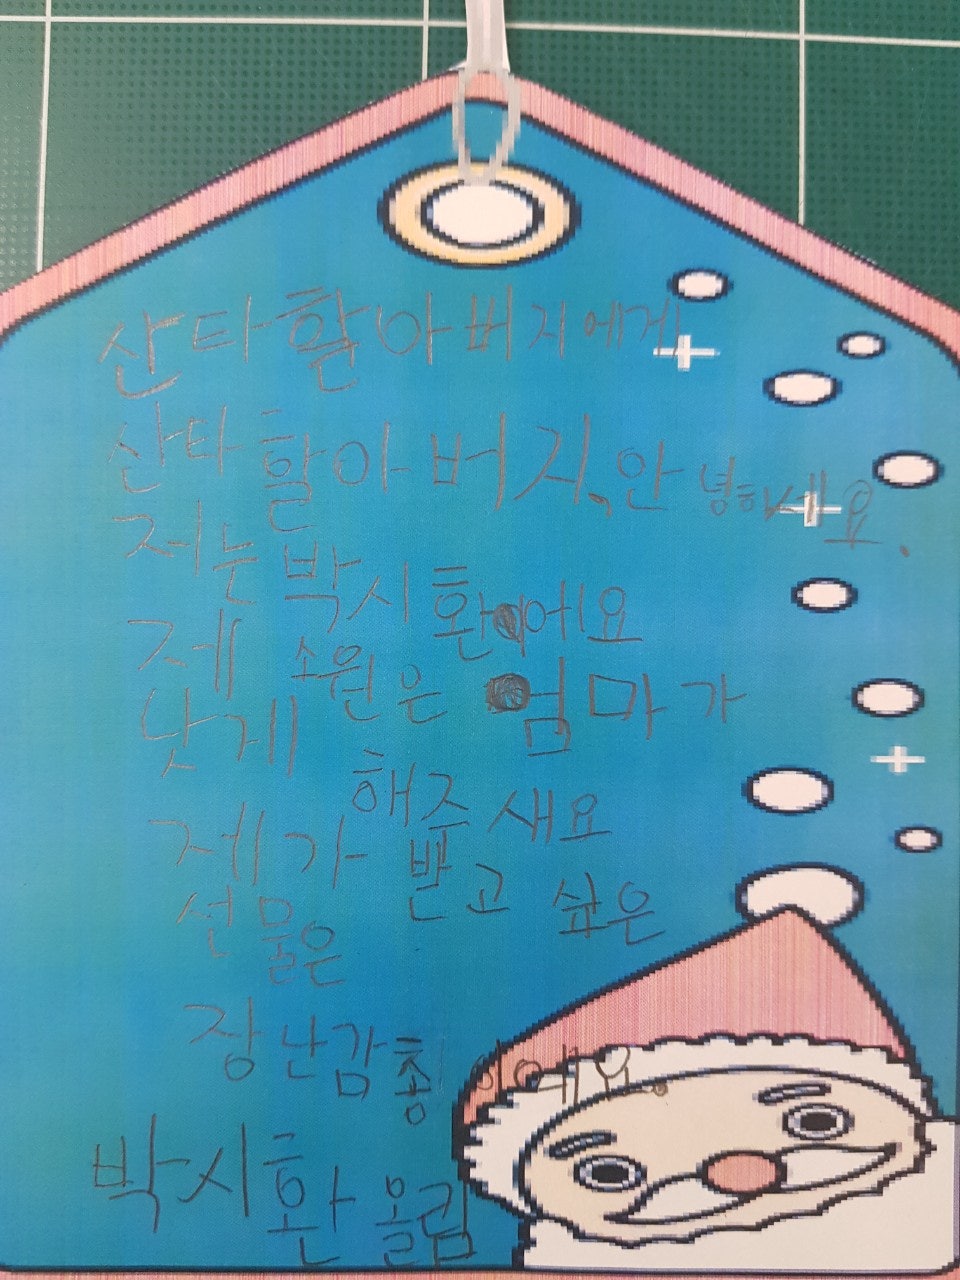 산타할아버지에게
산타할아버지, 안녕하세요.
저는 박시환이에요
제 소원은 엄마가
낫게 해주새요
제가 받고 싶은
선물은
장난감총이에요.
박시환 올림